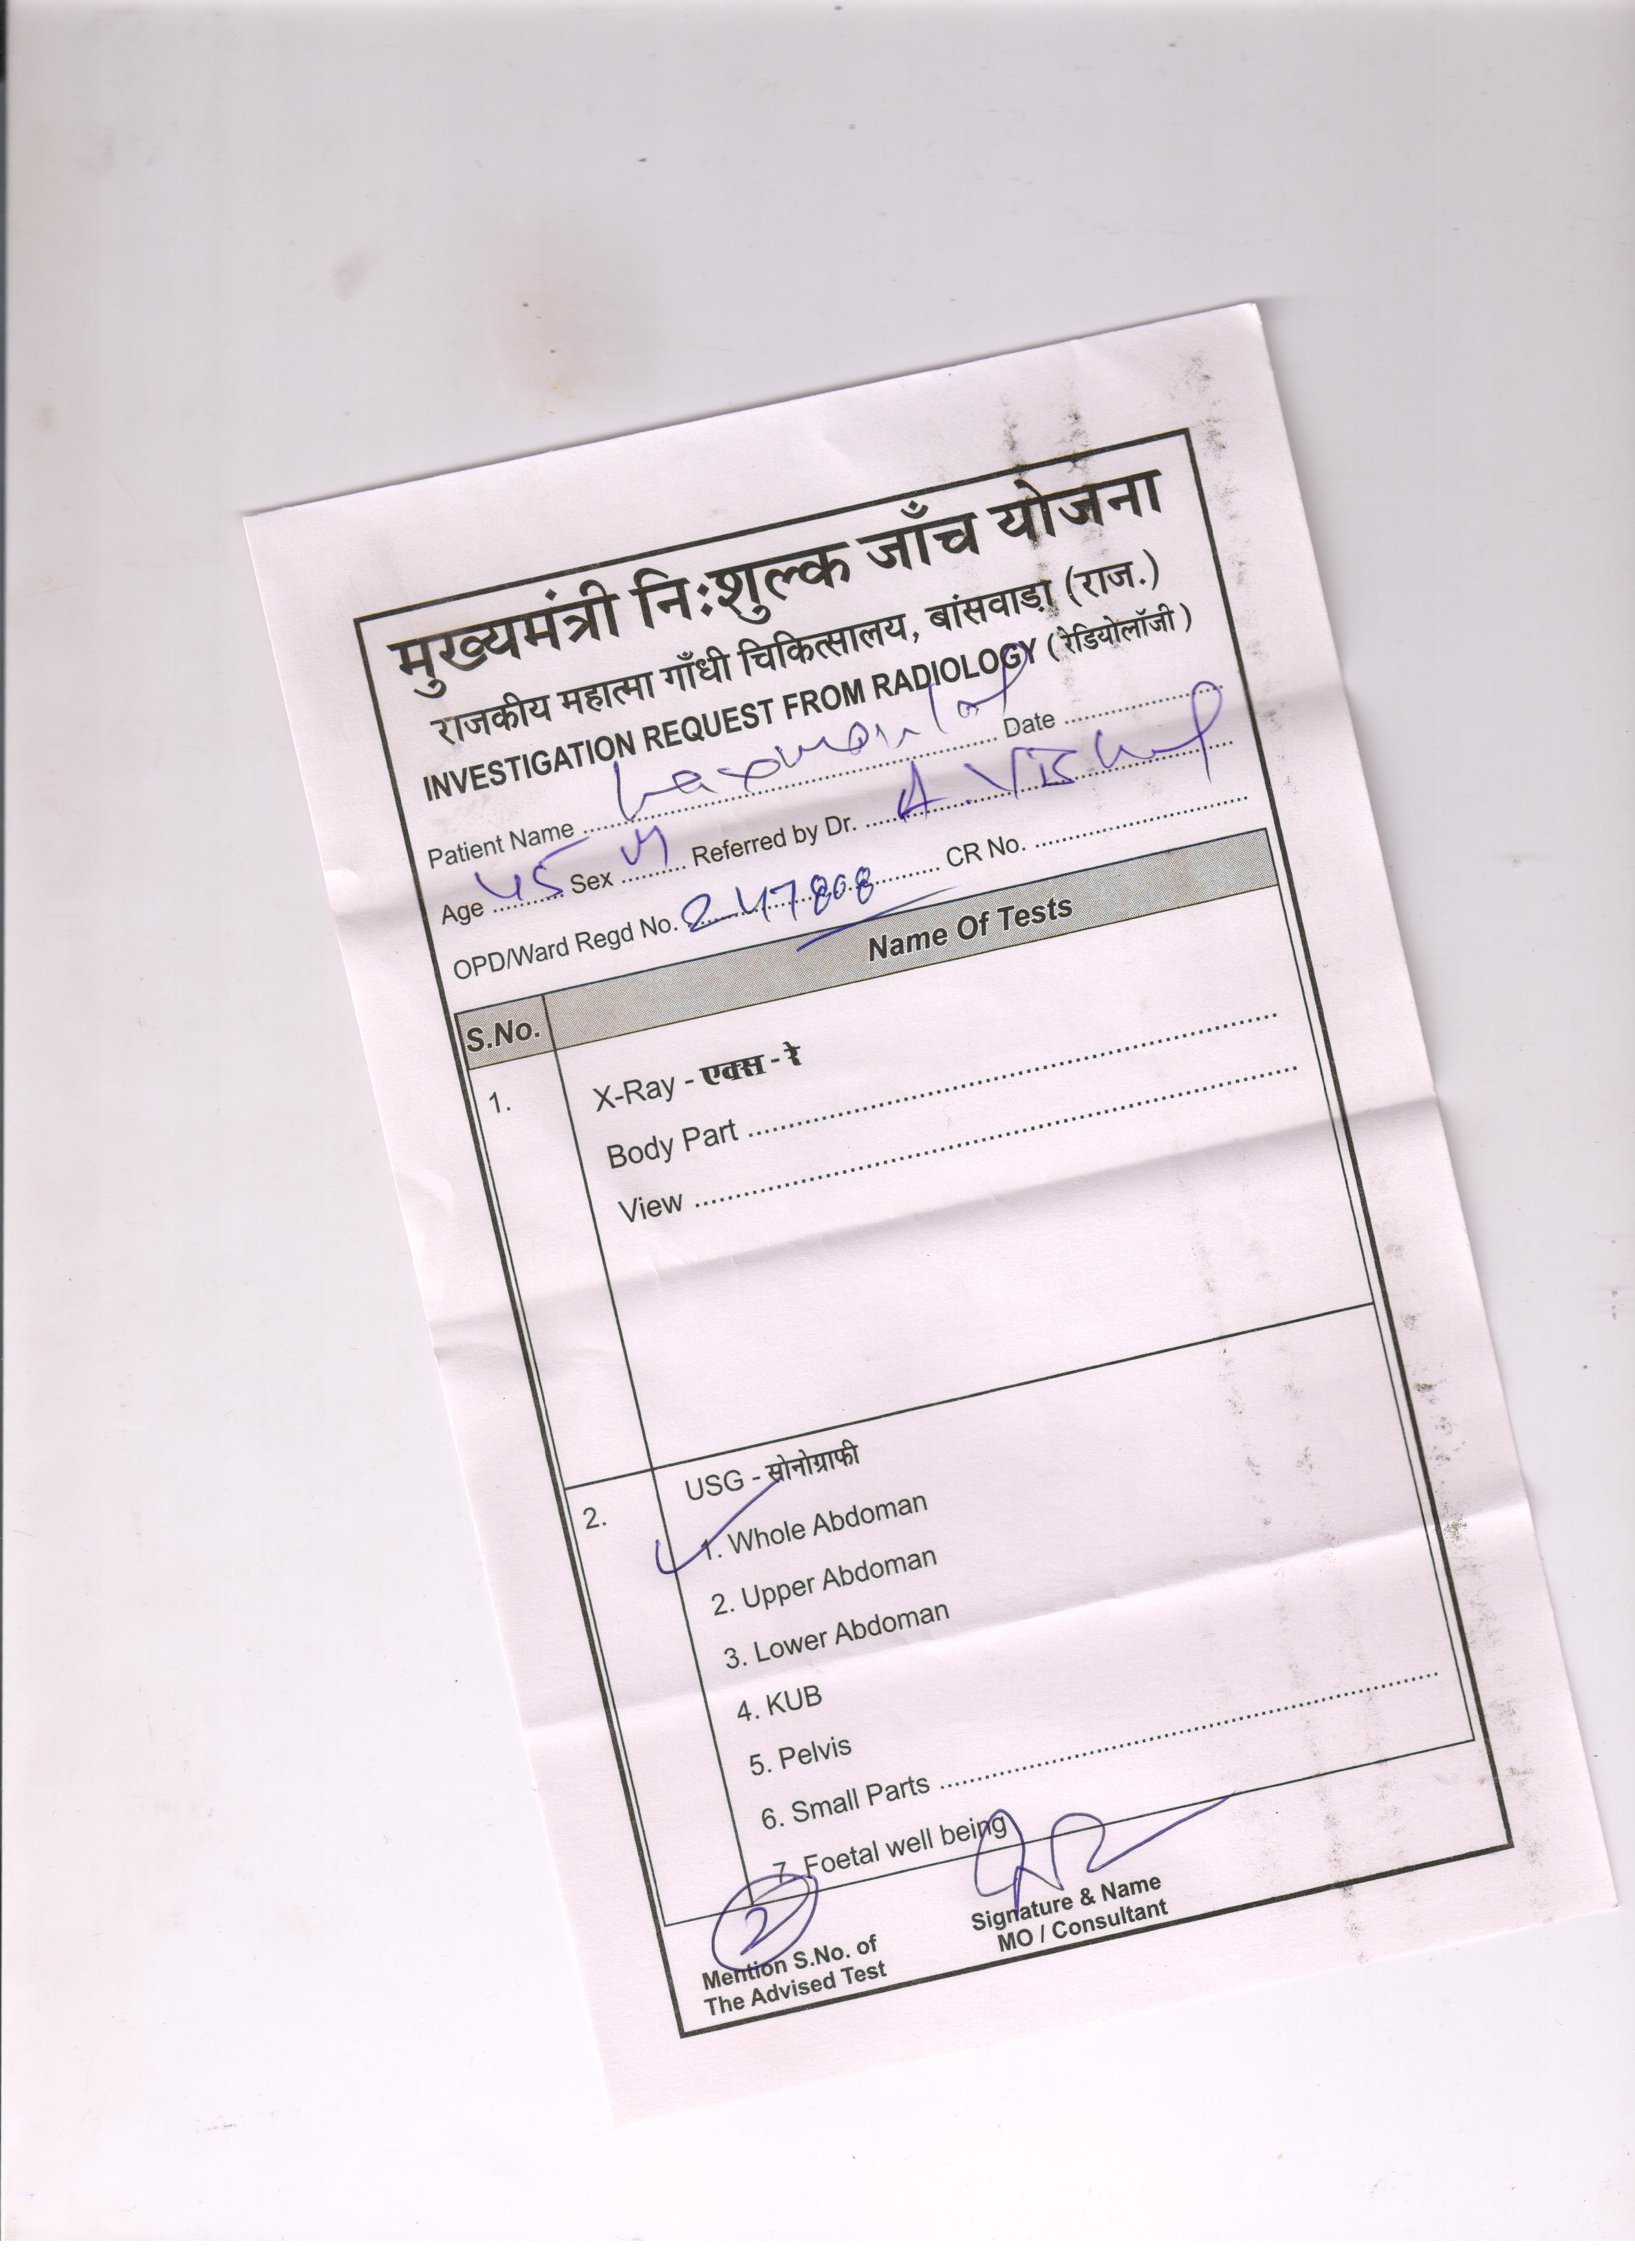 मुख्यमंत्री निःशुल्क जाँच योजना
राजकीय महात्मा गाँधी चिकित्सालय, बांसवाड़ा (राज.)
INVESTIGATION REQUEST FROM RADIOLOGY ( रेडियोलॉजी )
Patient Name ........ Laxmanlal ........ Date ........
Age ... 45 ... Sex ... M ... Referred by Dr. ... A.
OPD/Ward Regd No. ... 247808 ... CR No. ........
S.No. Name Of Tests
1. X-Ray - एक्स - रे
Body Part ........
View ........
2. USG - सोनोग्राफी
✓ 1. Whole Abdoman
2. Upper Abdoman
3. Lower Abdoman
4. KUB
5. Pelvis
6. Small Parts ........
7. Foetal well being
2
Mention S.No. of
The Advised Test
Signature & Name
MO / Consultant